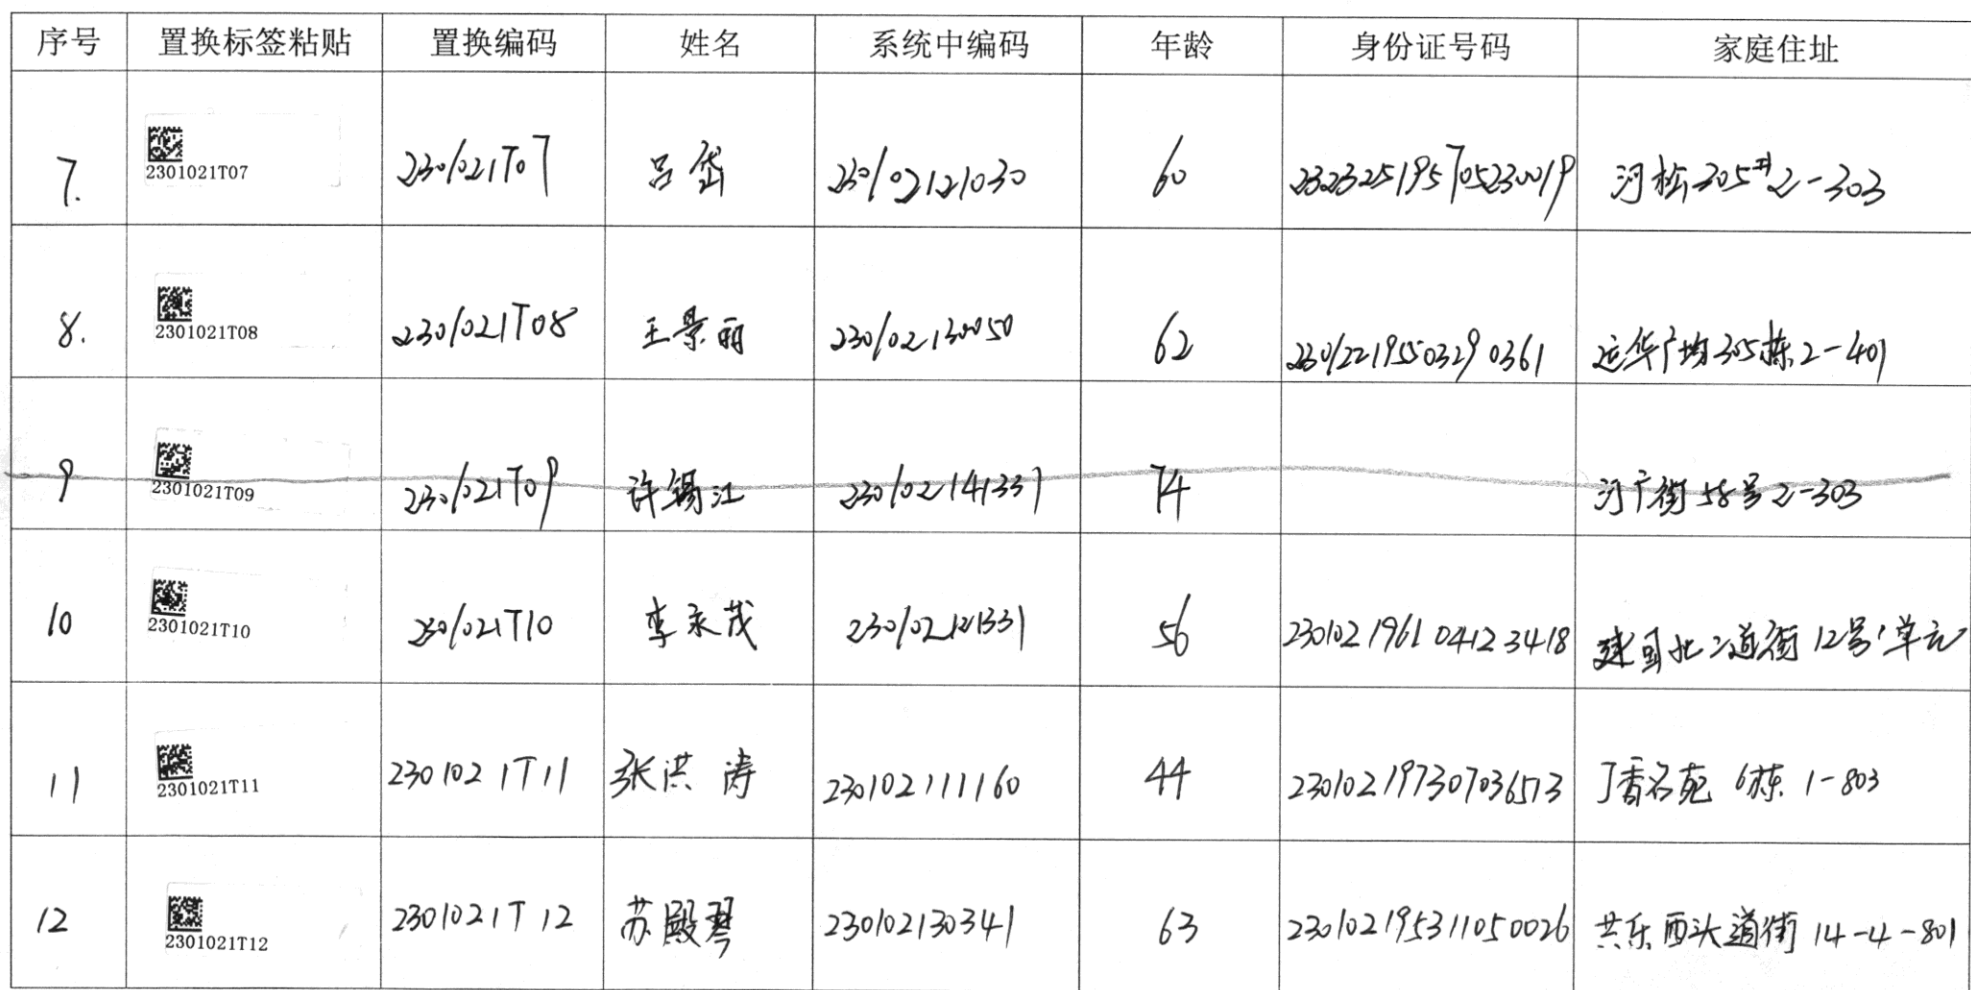 序号 置换标签粘贴 置换编码 姓名 系统中编码 年龄 身份证号码 家庭住址
7. 2301021T07 2301021T07 吕岱 230102121030 60 232325195705230019 河松305# 2-303
8. 2301021T08 2301021T08 王景丽 230102130050 62 230122195503290361 运华广场305栋2-401
9 2301021T09 2301021T09 许锡江 230102141337 74 河广街58号2-303
10 2301021T10 2301021T10 李永茂 230102121331 56 230102196104123418 建国北二道街12号1单元
11 2301021T11 2301021T11 张洪涛 230102111160 44 230102197307036513 丁香名苑 6栋 1-803
12 2301021T12 2301021T12 苏殿琴 230102130341 63 230102195311050026 共乐西头道街 14-4-801